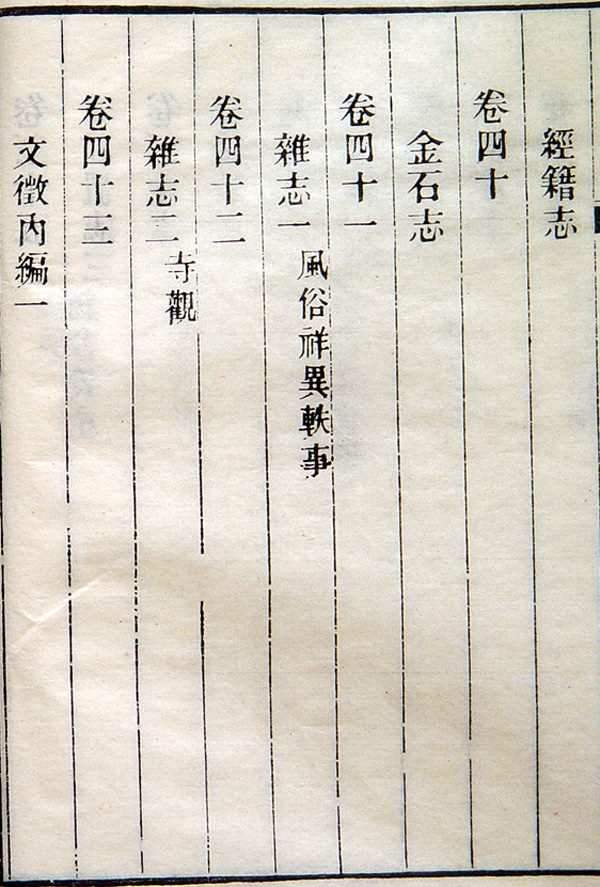 經籍志
卷四十
金石志
卷四十一
雜志一 風俗祥異軼事
卷四十二
雜志二 寺觀
卷四十三
文徵內編一